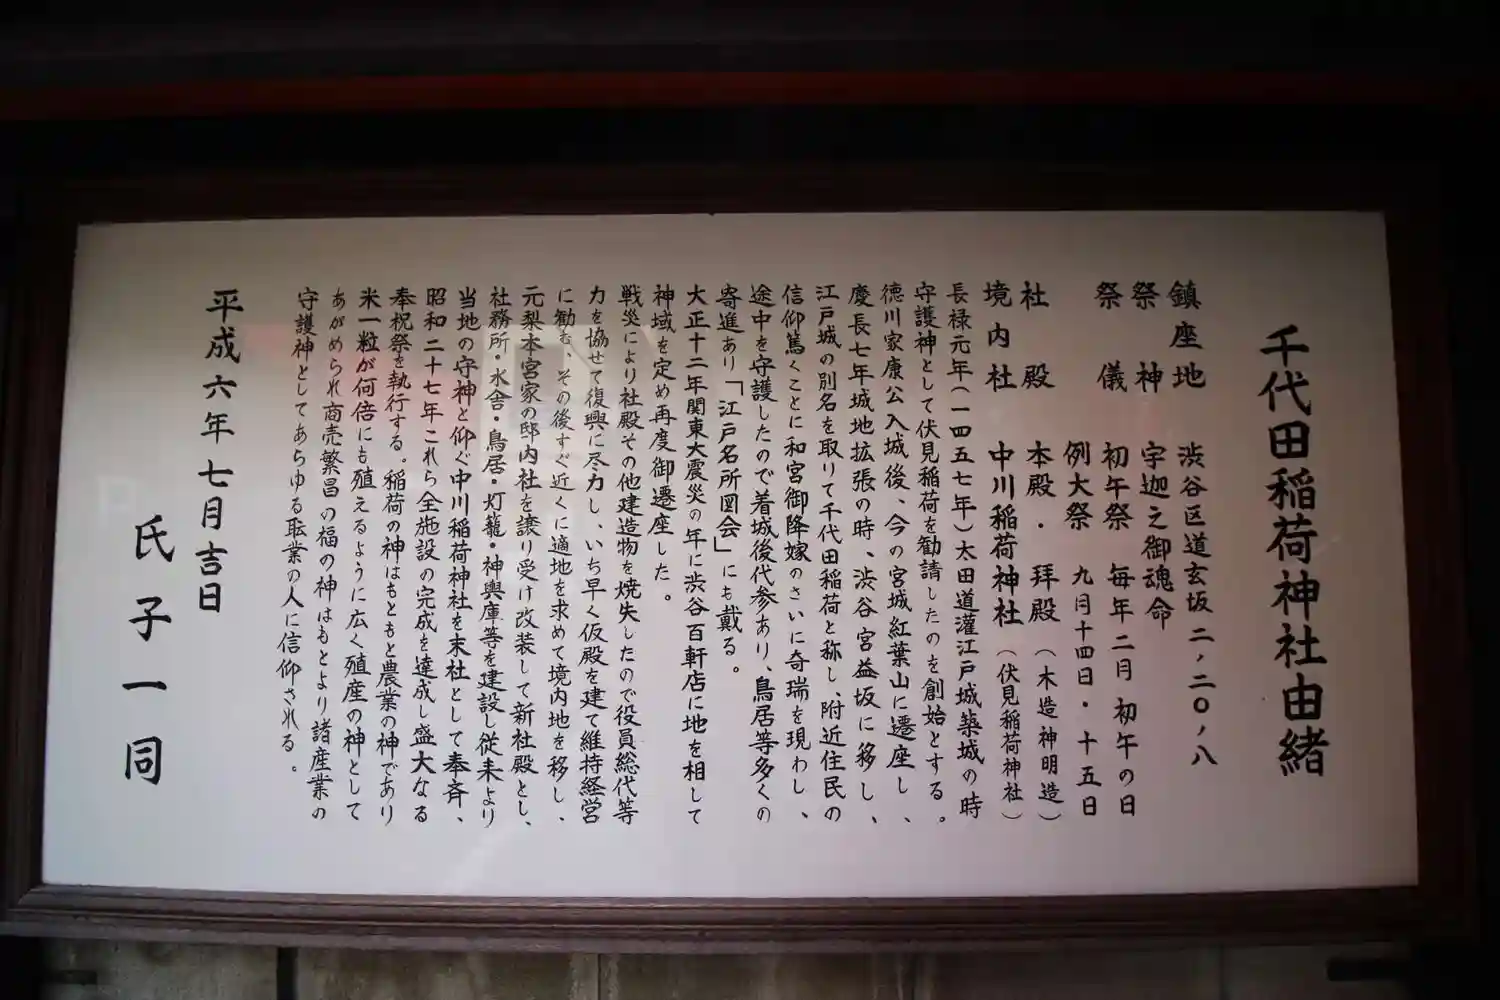 千代田稲荷神社由緒
鎮座地 渋谷区道玄坂二ノ二〇ノ八
祭神 宇迦之御魂命
祭儀 初午祭 毎年二月初午の日
例大祭 九月十四日・十五日
社殿 本殿・拝殿(木造神明造)
境内社 中川稲荷神社(伏見稲荷神社)
長禄元年(一四五七年)太田道灌江戸城築城の時
守護神として伏見稲荷を勧請したのを創始とする。
徳川家康公入城後、今の宮城紅葉山に遷座し、
慶長七年城地拡張の時、渋谷宮益坂に移し、
江戸城の別名を取りて千代田稲荷と称し、附近住民の
信仰篤くことに和宮御降嫁のさいに奇瑞を現わし、
途中を守護したので着城後代参あり、鳥居等多くの
寄進あり「江戸名所図会」にも戴る。
大正十二年関東大震災の年に渋谷百軒店に地を相して
神域を定め再度御遷座した。
戦災により社殿その他建造物を焼失したので役員総代等
力を協せて復興に尽力し、いち早く仮殿を建て維持経営
に勧む、その後すぐ近くに適地を求めて境内地を移し、
元梨本宮家の邸内社を譲り受け改装して新社殿とし、
社務所・水舎・鳥居・灯籠・神輿庫等を建設し従来より
当地の守神と仰ぐ中川稲荷神社を末社として奉斉、
昭和二十七年これら全施設の完成を達成し盛大なる
奉祝祭を執行する。稲荷の神はもともと農業の神であり
米一粒が何倍にも殖えるように広く殖産の神として
あがめられ商売繁昌の福の神はもとより諸産業の
守護神としてあらゆる耺業の人に信仰される。
平成六年七月吉日
氏子一同